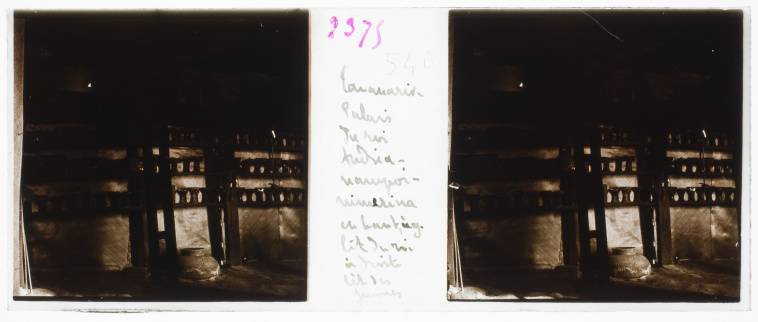 2375
540
Tananarive
Palais
du roi
Andria-
nampoi-
nimerina
en haut
lit du roi
à droite
lit des
femmes